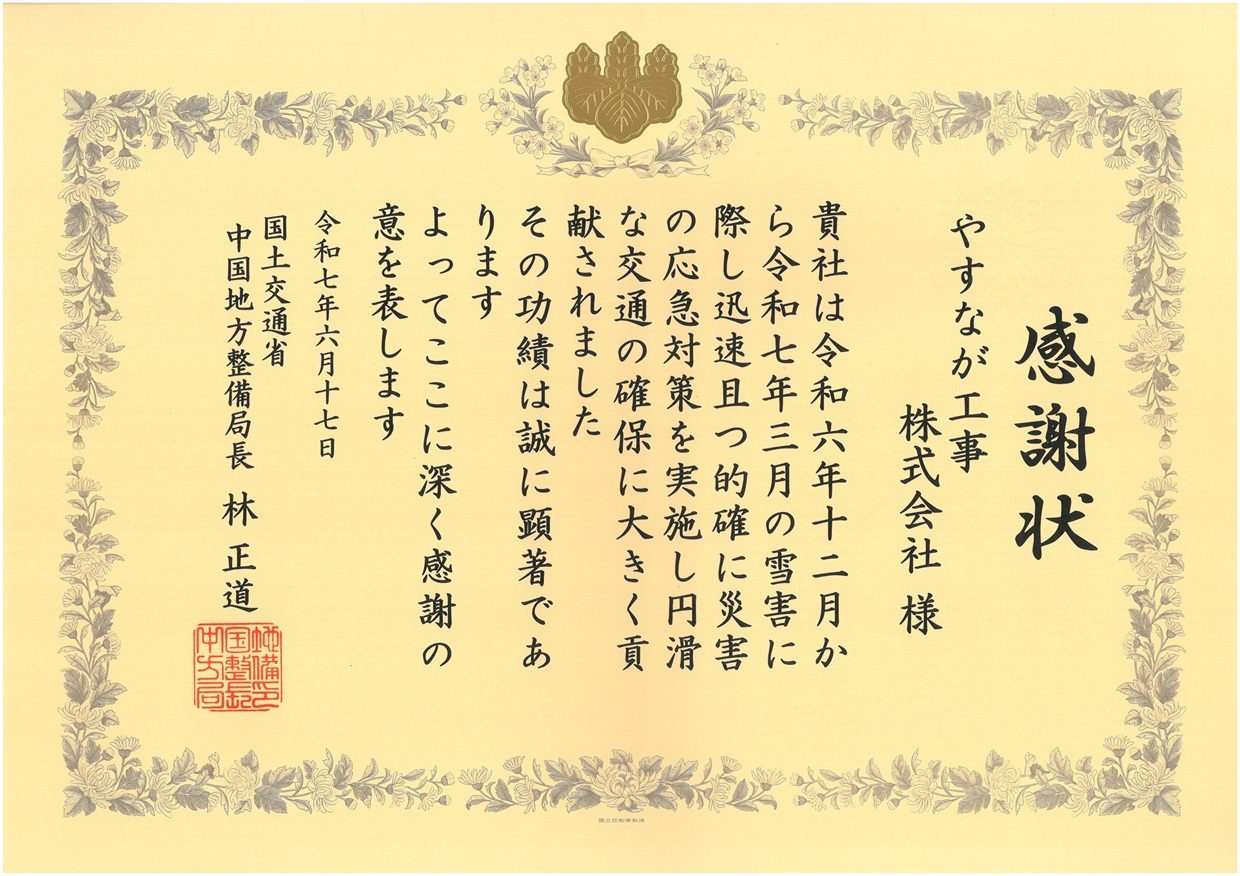 感謝状
やすなが工事
株式会社 様
貴社は令和六年十二月か
ら令和七年三月の雪害に
際し迅速且つ的確に災害
の応急対策を実施し円滑
な交通の確保に大きく貢
献されました
その功績は誠に顕著であ
ります
よってここに深く感謝の
意を表します
令和七年六月十七日
国土交通省
中国地方整備局長 林 正道